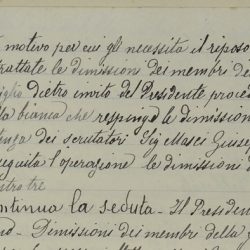 motivo per cui gli necessita il riposo
trattate le dimissioni dei membri de
siglio dietro invito del Presidente proced
da bianca che respinge le dimissioni
tenza dei scrutatori Sig Masci Giusep
eseguita l'operazione le dimissioni d
ntro tre
ontinua la seduta - Il Presiden
no - Dimissioni dei membri della